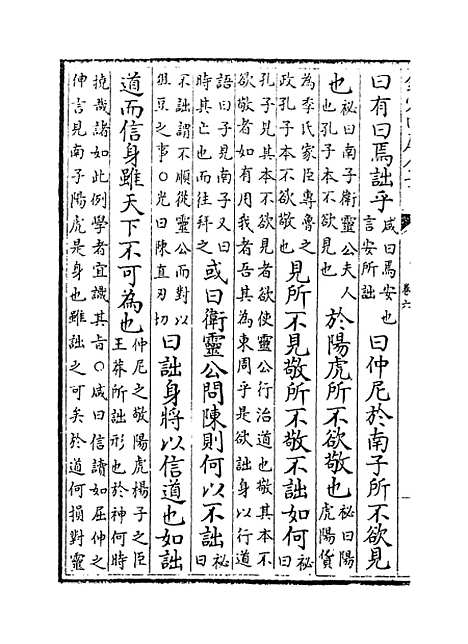 曰有曰焉詘乎
咸曰焉安也
言安所詘
曰仲尼於南子所不欲見
也
祕曰南子衛靈公夫人
也孔子本不欲見也
於陽虎所不欲敬也
祕曰陽
虎陽貨
為季氏家臣專魯之
政孔子本不欲敬也
見所不見敬所不敬不詘如何
祕
曰
孔子見其本不欲見者欲使靈公行治道也敬其本不
欲敬者如有用我者吾其為東周乎是欲詘身以行道
語曰子見南子又曰
時其亡也而往拜之
或曰衛靈公問陳則何以不詘
祕
曰
不詘謂不順從靈公而對以
俎豆之事○光曰陳直刃切
曰詘身將以信道也如詘
道而信身雖天下不可為也
仲尼之敬陽虎楊子之臣
王莽所詘形也於神何時
撓哉諸如此例學者宜識其旨○咸曰信讀如屈伸之
伸言見南子陽虎是身也雖詘之可矣於道何損對靈
卷六